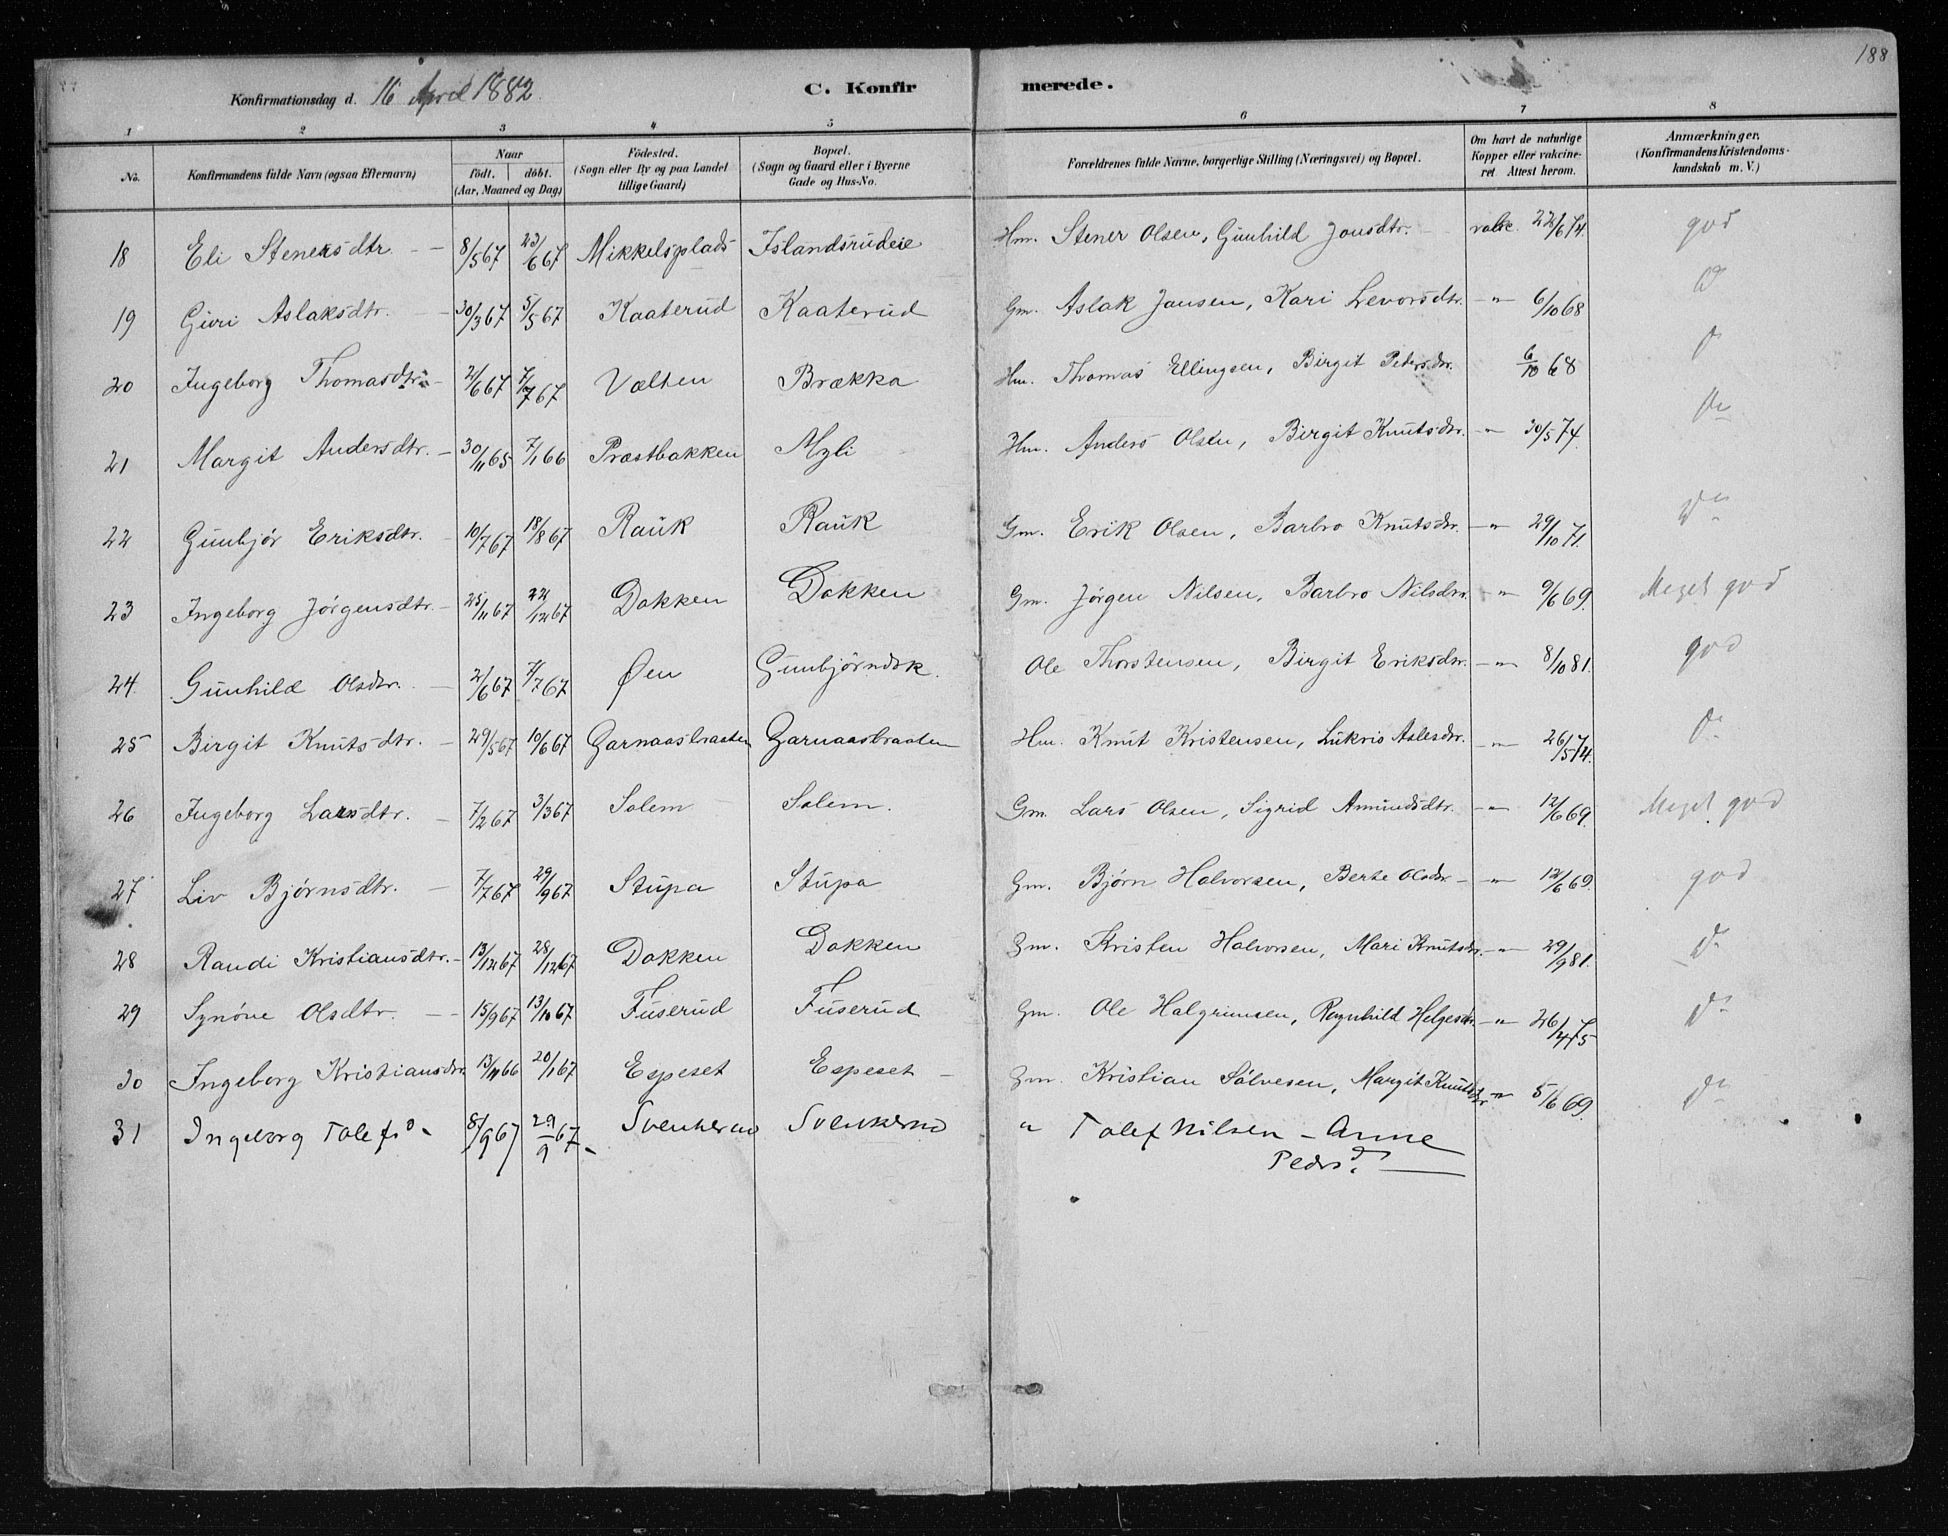 188
Konfirmationsdag d. 16 April 1882. C. Konfirmerede.
1 2 3 4 5 6 7 8
No. Konfirmandens fulde Navn (ogsaa Efternavn) Naar født. døbt. (Aar, Maaned og Dag) Fødested. (Sogn eller By og paa Landet tillige Gaard) Bopæl. (Sogn og Gaard eller i Byerne Gade og Hus-No. Forældrenes fulde Navne, borgerlige Stilling (Næringsvei) og Bopæl. Om havt de naturlige Kopper eller vakcineret Attest herom. Anmærkninger. (Konfirmandens Kristendomskundskab m. V.)
18 Eli Stenersdtr. 8/5 67 23/6 67 Mikkelsplads Islandsrudeie Hm. Stener Olsen, Gunhild Jonsdtr. vakc. 22/6 74. god
19 Guri Aslaksdtr. 30/3 67 5/5 67 Kaaterud Kaaterud Gm. Aslak Jansen, Kari Levorsdtr. -"- 6/10 68 D
20 Ingeborg Thomasdtr. 2/6 67 7/7 67 Vælten Brækka Hm. Thomas Ellingsen, Birgit Petersdr. 6/10 68 do
21 Margit Andersdtr. 30/11 65 7/1 66 Præstbakken Myli Hm. Anders Olsen, Birgit Knutsdr. -"- 30/5 74. do
22 Gunbjør Eriksdtr. 10/7 67 18/8 67 Rauk Rauk Gm. Erik Olsen, Barbro Knutsdr. -"- 29/10 71. Do
23 Ingeborg Jørgensdtr. 25/11 67 22/12 67 Dokken Dokken Gm. Jørgen Nilsen, Barbro Nilsdr. -"- 9/6 69. Meget god
24. Gunhild Olsdtr. 2/6 67 7/7 67 Øen Gunbjørndsk. Ole Thorstensen, Birgit Eriksdtr. -"- 8/10 81. god
25 Birgit Knutsdtr. 29/5 67 10/6 67 Garnaasbraaten Garnaasbraaten Hm. Knut Kristensen, Lukris Aslesdr. -"- 26/5 74. Do
26 Ingeborg Larsdtr. 7/2 67 3/3 67 Solem Solem. Gm. Lars Olsen, Sigrid Amundsdtr. -"- 12/6 69. Meget god
27 Liv Bjørnsdtr. 7/7 67 29/9 67 Stupa Stupa Gm. Bjørn Halvorsen, Berte Olsdr. -"- 12/6 69. god
28 Randi Kristiansdtr. 13/12 67 28/12 67 Dokken Dokken Gm. Kristen Halvorsen, Mari Knutsdr. -"- 29/9 81. Do
29 Synøve Olsdtr. 15/9 67 13/10 67 Fuserud Fuserud Gm. Ole Halgrimsen, Ragnhild Helgesdr. -"- 26/4 75 Do
30 Ingeborg Kristiansdr. 13/11 66 20/1 67 Espeset Espeset Gm. Kristian Sølvesen, Margit Knutsdtr. -"- 5/6 69. Do
31 Ingeborg Tolefsd. 8/9 67 29/9 67. Svenkerud Svenkerud " Tolef Nilsen - Anne
Pedrsd.